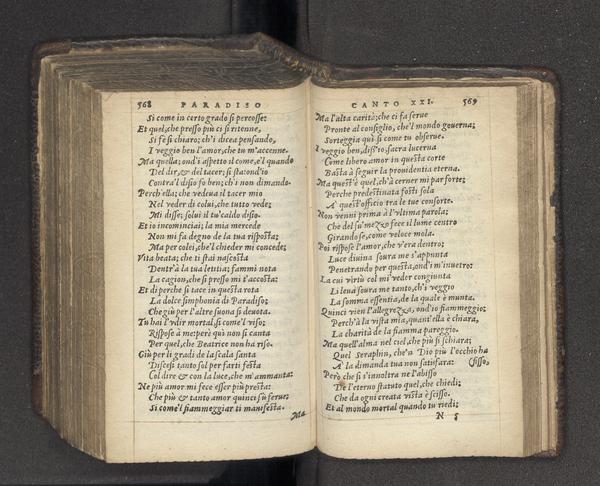 568 PARADISO
Si come in certo grado si percosse:
Et quel, che presso più ci si ritenne,
Si fe si chiaro; ch'i dicea pensando,
I veggio ben l'amor, che tu m'accenne.
Ma quella; ond'i aspetto il come, e'l quando
Del dir, & del tacer; si sta: ond'io
Contra'l disio fo ben; ch'i non dimando.
Perch'ella; che vedea il tacer mio
Nel veder di colui, che tutto vede;
Mi disse; solui il tu' caldo disio.
Et io incominciai; la mia mercede
Non mi fa degno de la tua risposta;
Ma per colei, che'l chieder mi concede;
Vita beata; che ti stai nascosta
Dentr'à la tua letitia; fammi nota
La cagion, che si presso mi t'accosta:
Et di perche si tace in questa rota
La dolce simphonia di Paradiso;
Che giu per l'altre suona si deuota.
Tu hai l'vdir mortal, si come'l viso;
Rispose à me: però quì non si canta
Per quel, che Beatrice non ha riso.
Giù per li gradi de la scala santa
Discesi tanto sol per farti festa
Col dire & con la luce, che m'ammanta:
Ne più amor mi fece esser più presta:
Che più & tanto amor quinci sù ferue;
Si come'l fiammeggiar ti manifesta.
Ma
CANTO XXI. 569
Ma l'alta carità; che ci fa serue
Pronte al consiglio, che'l mondo gouerna;
Sorteggia quì si come tu obserue.
I veggio ben, diss'io, sacra lucerna
Come libero amor in questa corte
Basta à seguir la prouidentia eterna.
Ma quest'è quel, ch'à cerner mi par forte;
Perche predestinata fosti sola
A' quest'officio tra le tue consorte.
Non venni prima à l'vltima parola;
Che del su' mezzo fece il lume centro
Girandose, come veloce mola.
Poi rispose l'amor, che v'era dentro;
Luce diuina soura me s'appunta
Penetrando per questa, ond'i m'inuetro:
La cui virtù col mi' veder congiunta
Mi leua soura me tanto, ch'i veggio
La somma essentia, de la quale è munta.
Quinci vien l'allegrezza, ond'io fiammeggio;
Perch'à la vista mia, quant'ella è chiara,
La chiarità de la fiamma pareggio.
Ma quell'alma nel ciel, che più si schiara;
Quel Seraphin, che'n Dio più l'occhio ha
A' la dimanda tua non satisfara: (fisso,
Però che si s'innoltra ne l'abisso
De l'eterno statuto quel, che chiedi;
Che da ogni creata vista è scisso.
Et al mondo mortal quando tu riedi;
N